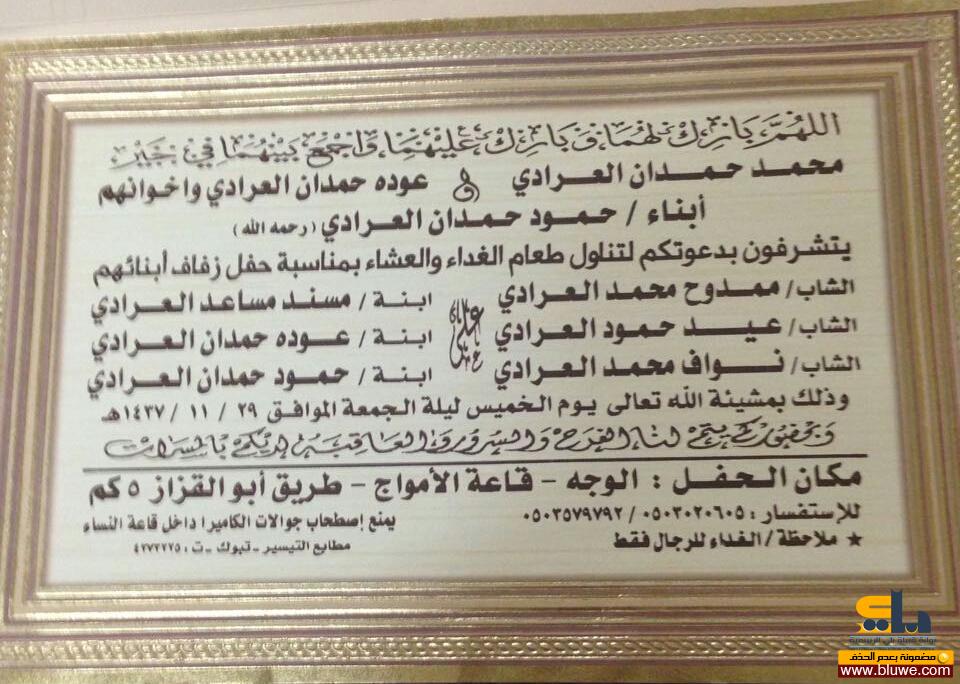 اللهم بارك لهما وبارك عليهما واجمع بينهما في خير
محمد حمدان العرادي و عوده حمدان العرادي واخوانهم
أبناء / حمود حمدان العرادي (رحمه الله)
يتشرفون بدعوتكم لتناول طعام الغداء والعشاء بمناسبة حفل زفاف أبنائهم
الشاب/ ممدوح محمد العرادي على ابنة / مسند مساعد العرادي
الشاب/ عيد حمود العرادي ابنة / عوده حمدان العرادي
الشاب/ نواف محمد العرادي ابنة / حمود حمدان العرادي
وذلك بمشيئة الله تعالى يوم الخميس ليلة الجمعة الموافق ٢٩ / ١١ / ١٤٣٧هـ
وبحضوركم يتم لنا الفرح والسرور والعاقبة لديكم بالمسرات
مكان الحفل : الوجه - قاعة الأمواج - طريق أبو القزاز ٥ كم
للإستفسار : ٠٥٠٣٠٢٠٦٠٥ / ٠٥٠٣٥٧٩٧٩٢ يمنع إصطحاب جوالات الكاميرا داخل قاعة النساء
★ ملاحظة / الغداء للرجال فقط مطابع التيسير - تبوك - ت : ٤٢٢٢٢٢٥
بلي
بوابة قبيلة بلي الرسمية
مضمونة بعدم الحذف
www.bluwe.com